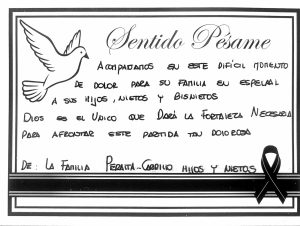 Sentido Pésame
ACOMPAÑAMOS EN ESTE DIFÍCIL MOMENTO
DE DOLOR PARA SU FAMILIA EN ESPECIAL
A SUS HIJOS, NIETOS Y BISNIETOS
DIOS ES EL UNICO QUE DARÁ LA FORTALEZA NECESARIA
PARA AFRONTAR ESTE PARTIDA TAN DOLOROSA
DE: LA FAMILIA PERALTA-CARRILLO HIJOS Y NIETOS